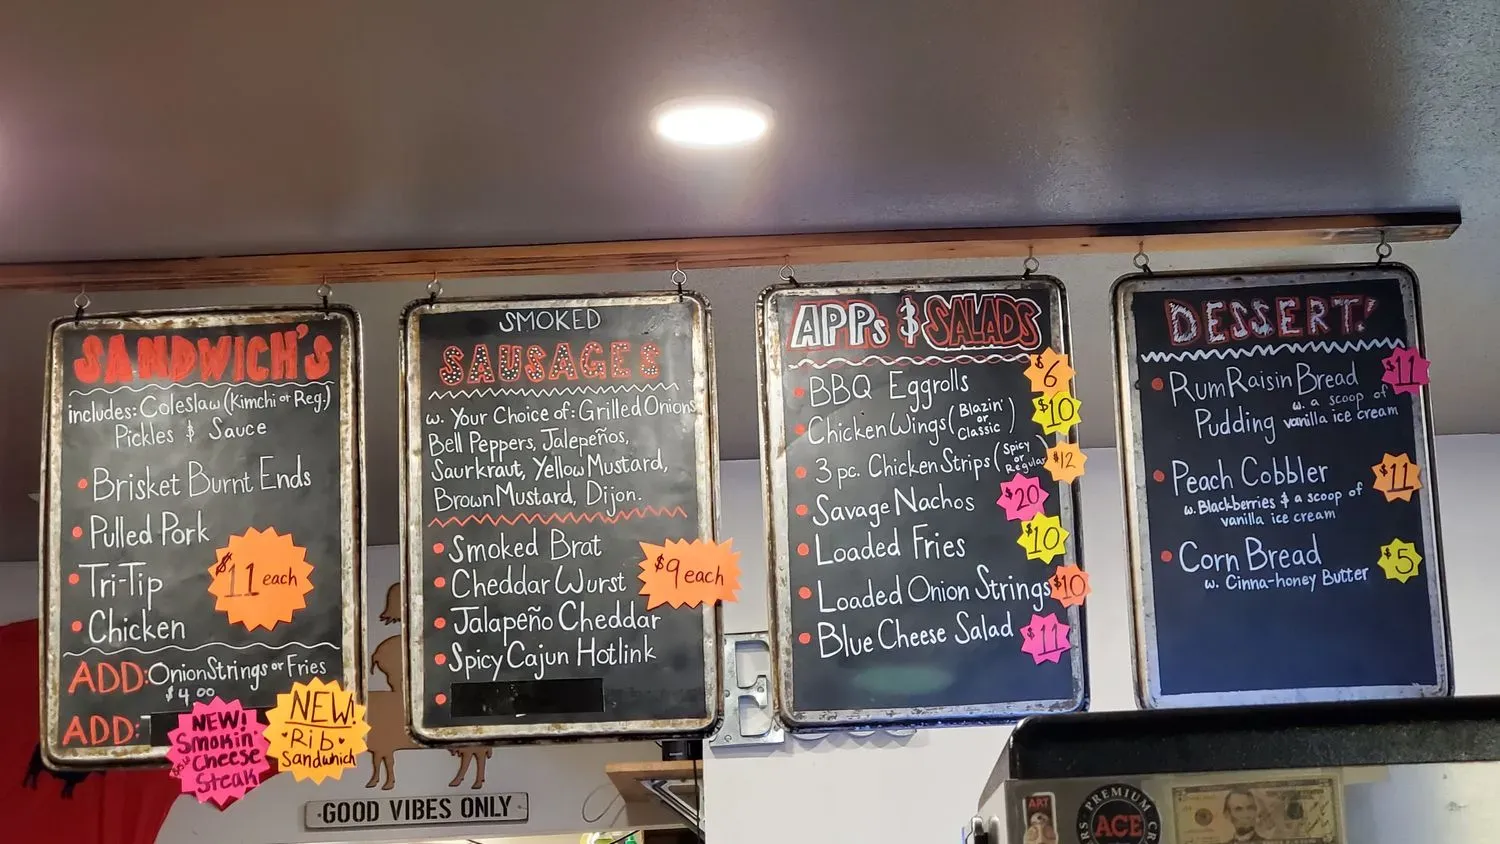 SANDWICH'S
includes: Coleslaw (Kimchi or Reg.)
Pickles & Sauce
Brisket Burnt Ends
Pulled Pork
Tri-Tip
Chicken
$11 each
ADD: Onion Strings or Fries
$4.00
ADD:
NEW!
Smokin'
Cheese
Steak
NEW!
Rib
Sandwhich
SMOKED
SAUSAGES
w. Your Choice of: Grilled Onions
Bell Peppers, Jalepeños,
Saurkraut, Yellow Mustard,
Brown Mustard, Dijon.
Smoked Brat
Cheddar Wurst
$9 each
Jalapeño Cheddar
Spicy Cajun Hotlink
APPs & SALADS
BBQ Eggrolls $6
Chicken Wings (Blazin' or Classic) $10
3 pc. Chicken Strips (Spicy or Regular) $12
Savage Nachos $20
Loaded Fries $10
Loaded Onion Strings $10
Blue Cheese Salad $11
DESSERT!
Rum Raisin Bread $11
Pudding w. a scoop of
vanilla ice cream
Peach Cobbler $11
w. Blackberries & a scoop of
vanilla ice cream
Corn Bread $5
w. Cinna-honey Butter
GOOD VIBES ONLY
ART
PREMIUM
ACE